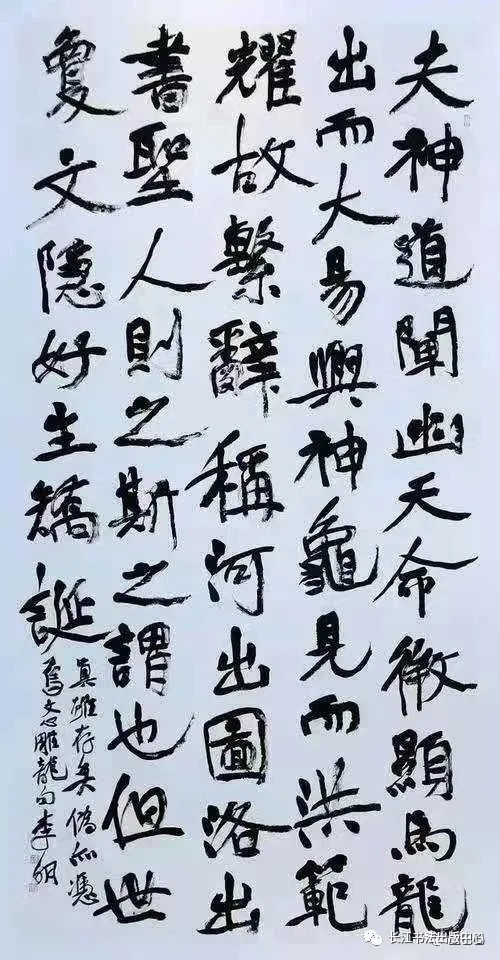 夫神道闡幽天命微顯馬龍
出而大易興神龜見而洪範
耀故繫辭稱河出圖洛出
書聖人則之斯之謂也但世
夐文隱好生矯誕
真雖存矣偽亦憑
焉文心雕龍句李
长江书法出版中心